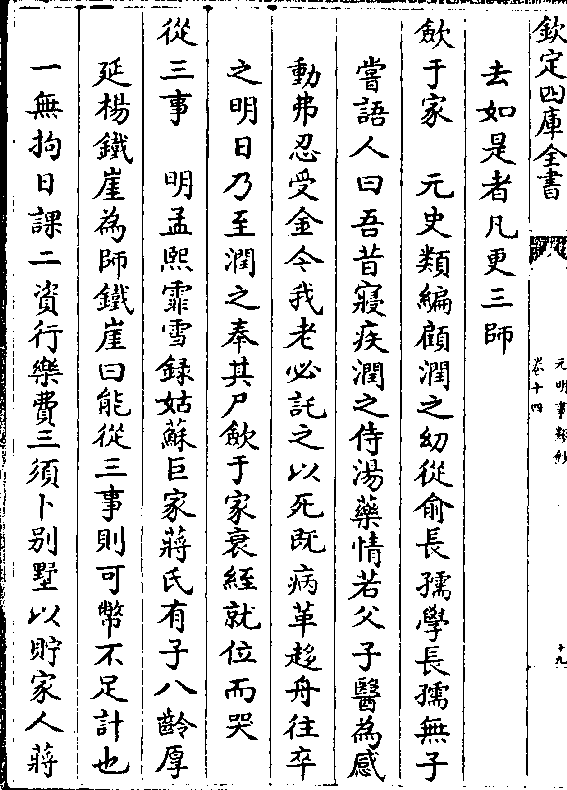 欽定四庫全書
元明事類鈔
卷十四
十九
去如是者凡更三師
歛于家　元史類編顧潤之幼從俞長孺學長孺無子
嘗語人曰吾昔寢疾潤之侍湯藥情若父子醫為感
動弗忍受金今我老必託之以死既病革趍舟往卒
之明日乃至潤之奉其尸歛于家衰絰就位而哭
從三事　明孟熙霏雪録姑蘇巨家蔣氏有子八齡厚
延楊鐵崖為師鐵崖曰能從三事則可幣不足計也
一無拘日課二資行樂費三須卜别墅以貯家人蔣